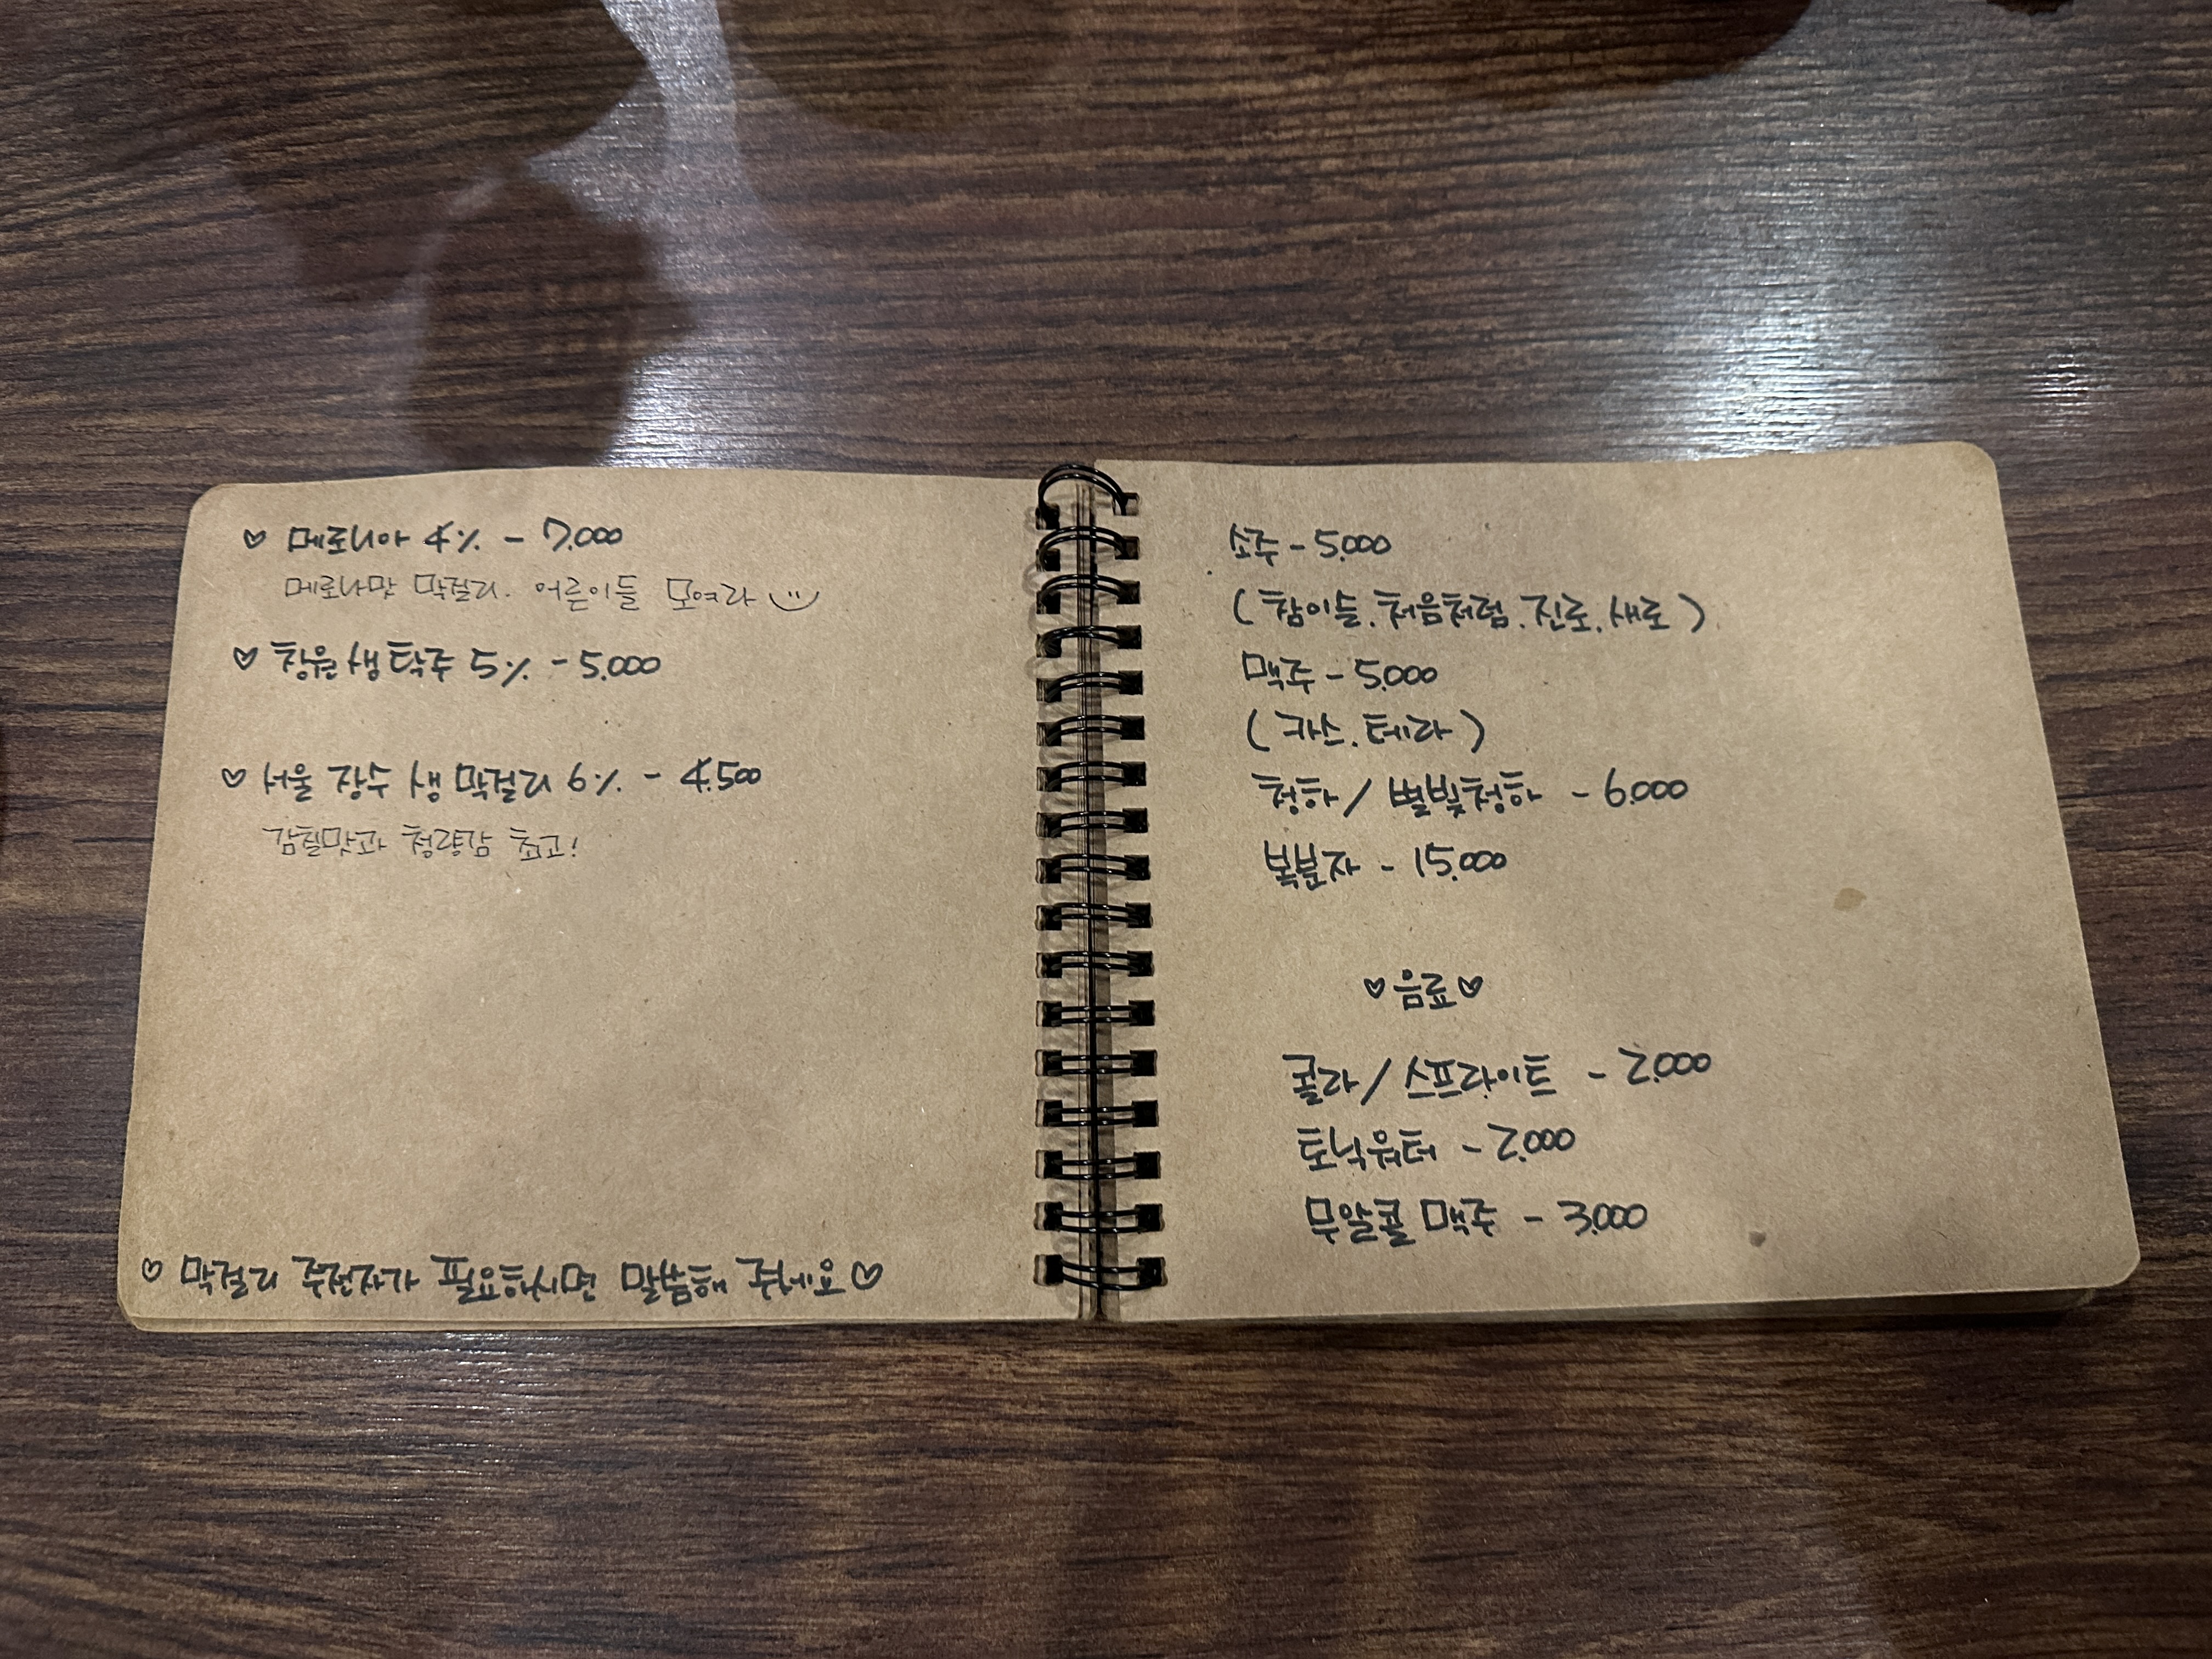 ♡ 메로니아 4% - 7.000
메로나맛 막걸리. 어른이들 모여라
♡ 창원 생 탁주 5% - 5.000
♡ 서울 장수 생 막걸리 6% - 4.500
감칠맛과 청량감 최고!
♡ 막걸리 주전자가 필요하시면 말씀해 주세요 ♡
소주 - 5.000
( 참이슬. 처음처럼. 진로. 새로 )
맥주 - 5.000
( 카스. 테라 )
청하 / 별빛청하 - 6.000
복분자 - 15.000
♡ 음료 ♡
콜라 / 스프라이트 - 2.000
토닉워터 - 2.000
무알콜 맥주 - 3.000